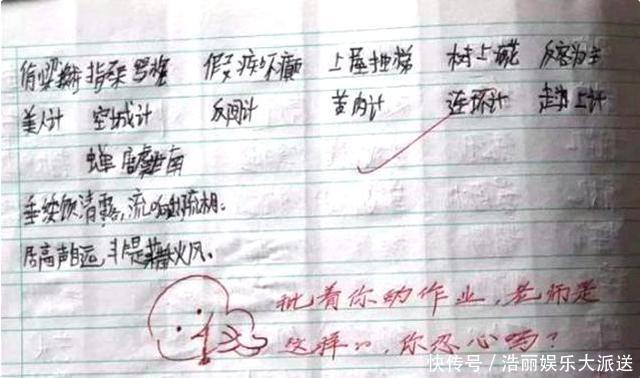 偷梁换柱 指桑骂槐 假痴不癫 上屋抽梯 树上开花 反客为主
美人计 空城计 反间计 苦肉计 连环计 走为上计
蝉 唐 虞世南
垂緌饮清露,流响出疏桐。
居高声自远,非是藉秋风。
批着你的作业,老师是
这样的,你忍心吗?
快传号/浩丽娱乐大派送